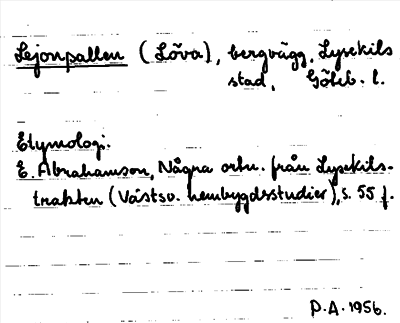 Lejonpallen (Löva), bergvägg, Lysekils
stad, Göteb. l.
Etymologi:
E. Abrahamson, Några ortn. från Lysekils-
trakten (Västsv. hembygdsstudier), s. 55 f.
P.A. 1956.